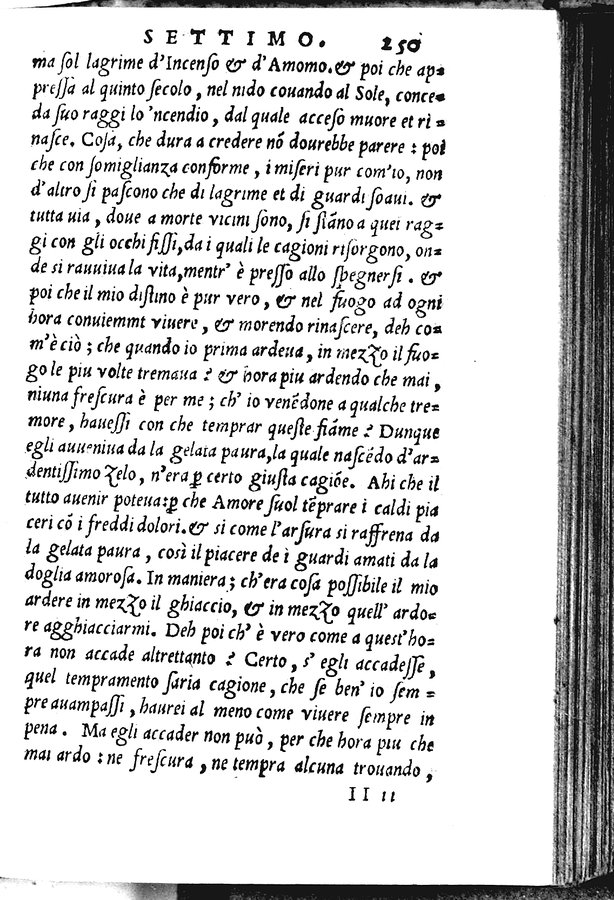 SETTIMO. 250
ma sol lagrime d'Incenso & d'Amomo. & poi che ap=
pressa al quinto secolo, nel nido couando al Sole, conce=
da suo raggi lo 'ncendio, dal quale acceso muore et ri=
nasce. Cosa, che dura a credere nõ dourebbe parere : poi
che con somiglianza conforme, i miseri pur com'io, non
d'altro si pascono che di lagrime et di guardi soaui. &
tutta uia, doue a morte vicini sono, si stãno a quei rag=
gi con gli occhi fissi, da i quali le cagioni risorgono, on=
de si rauuiua la vita, mentr' è presso allo spegnersi. &
poi che il mio distino è pur vero, & nel fuogo ad ogni
hora conuiemmi viuere, & morendo rinascere, deh co=
m'è ciò ; che quando io prima ardeua, in mezzo il fuo=
go le piu volte tremaua ? & hora piu ardendo che mai,
niuna frescura è per me ; ch' io venẽdone a qualche tre=
more, hauessi con che temprar queste fiãme ? Dunque
egli auueniua da la gelata paura, la quale nascẽdo d'ar=
dentissimo Zelo, n'era ꝑ certo giusta cagiõe. Ahi che il
tutto auenir poteua : ꝑ che Amore suol tẽprare i caldi pia
ceri cõ i freddi dolori. & si come l'arsura si raffrena da
la gelata paura, così il piacere de i guardi amati da la
doglia amorosa. In maniera ; ch'era cosa possibile il mio
ardere in mezzo il ghiaccio, & in mezzo quell' ardo=
re agghiacciarmi. Deh poi ch' è vero come a quest'ho=
ra non accade altrettanto ? Certo, s' egli accadesse,
quel tempramento saria cagione, che se ben' io sem=
pre auampassi, haurei al meno come viuere sempre in
pena. Ma egli accader non può, per che hora piu che
mai ardo : ne frescura, ne tempra alcuna trouando,
II ii